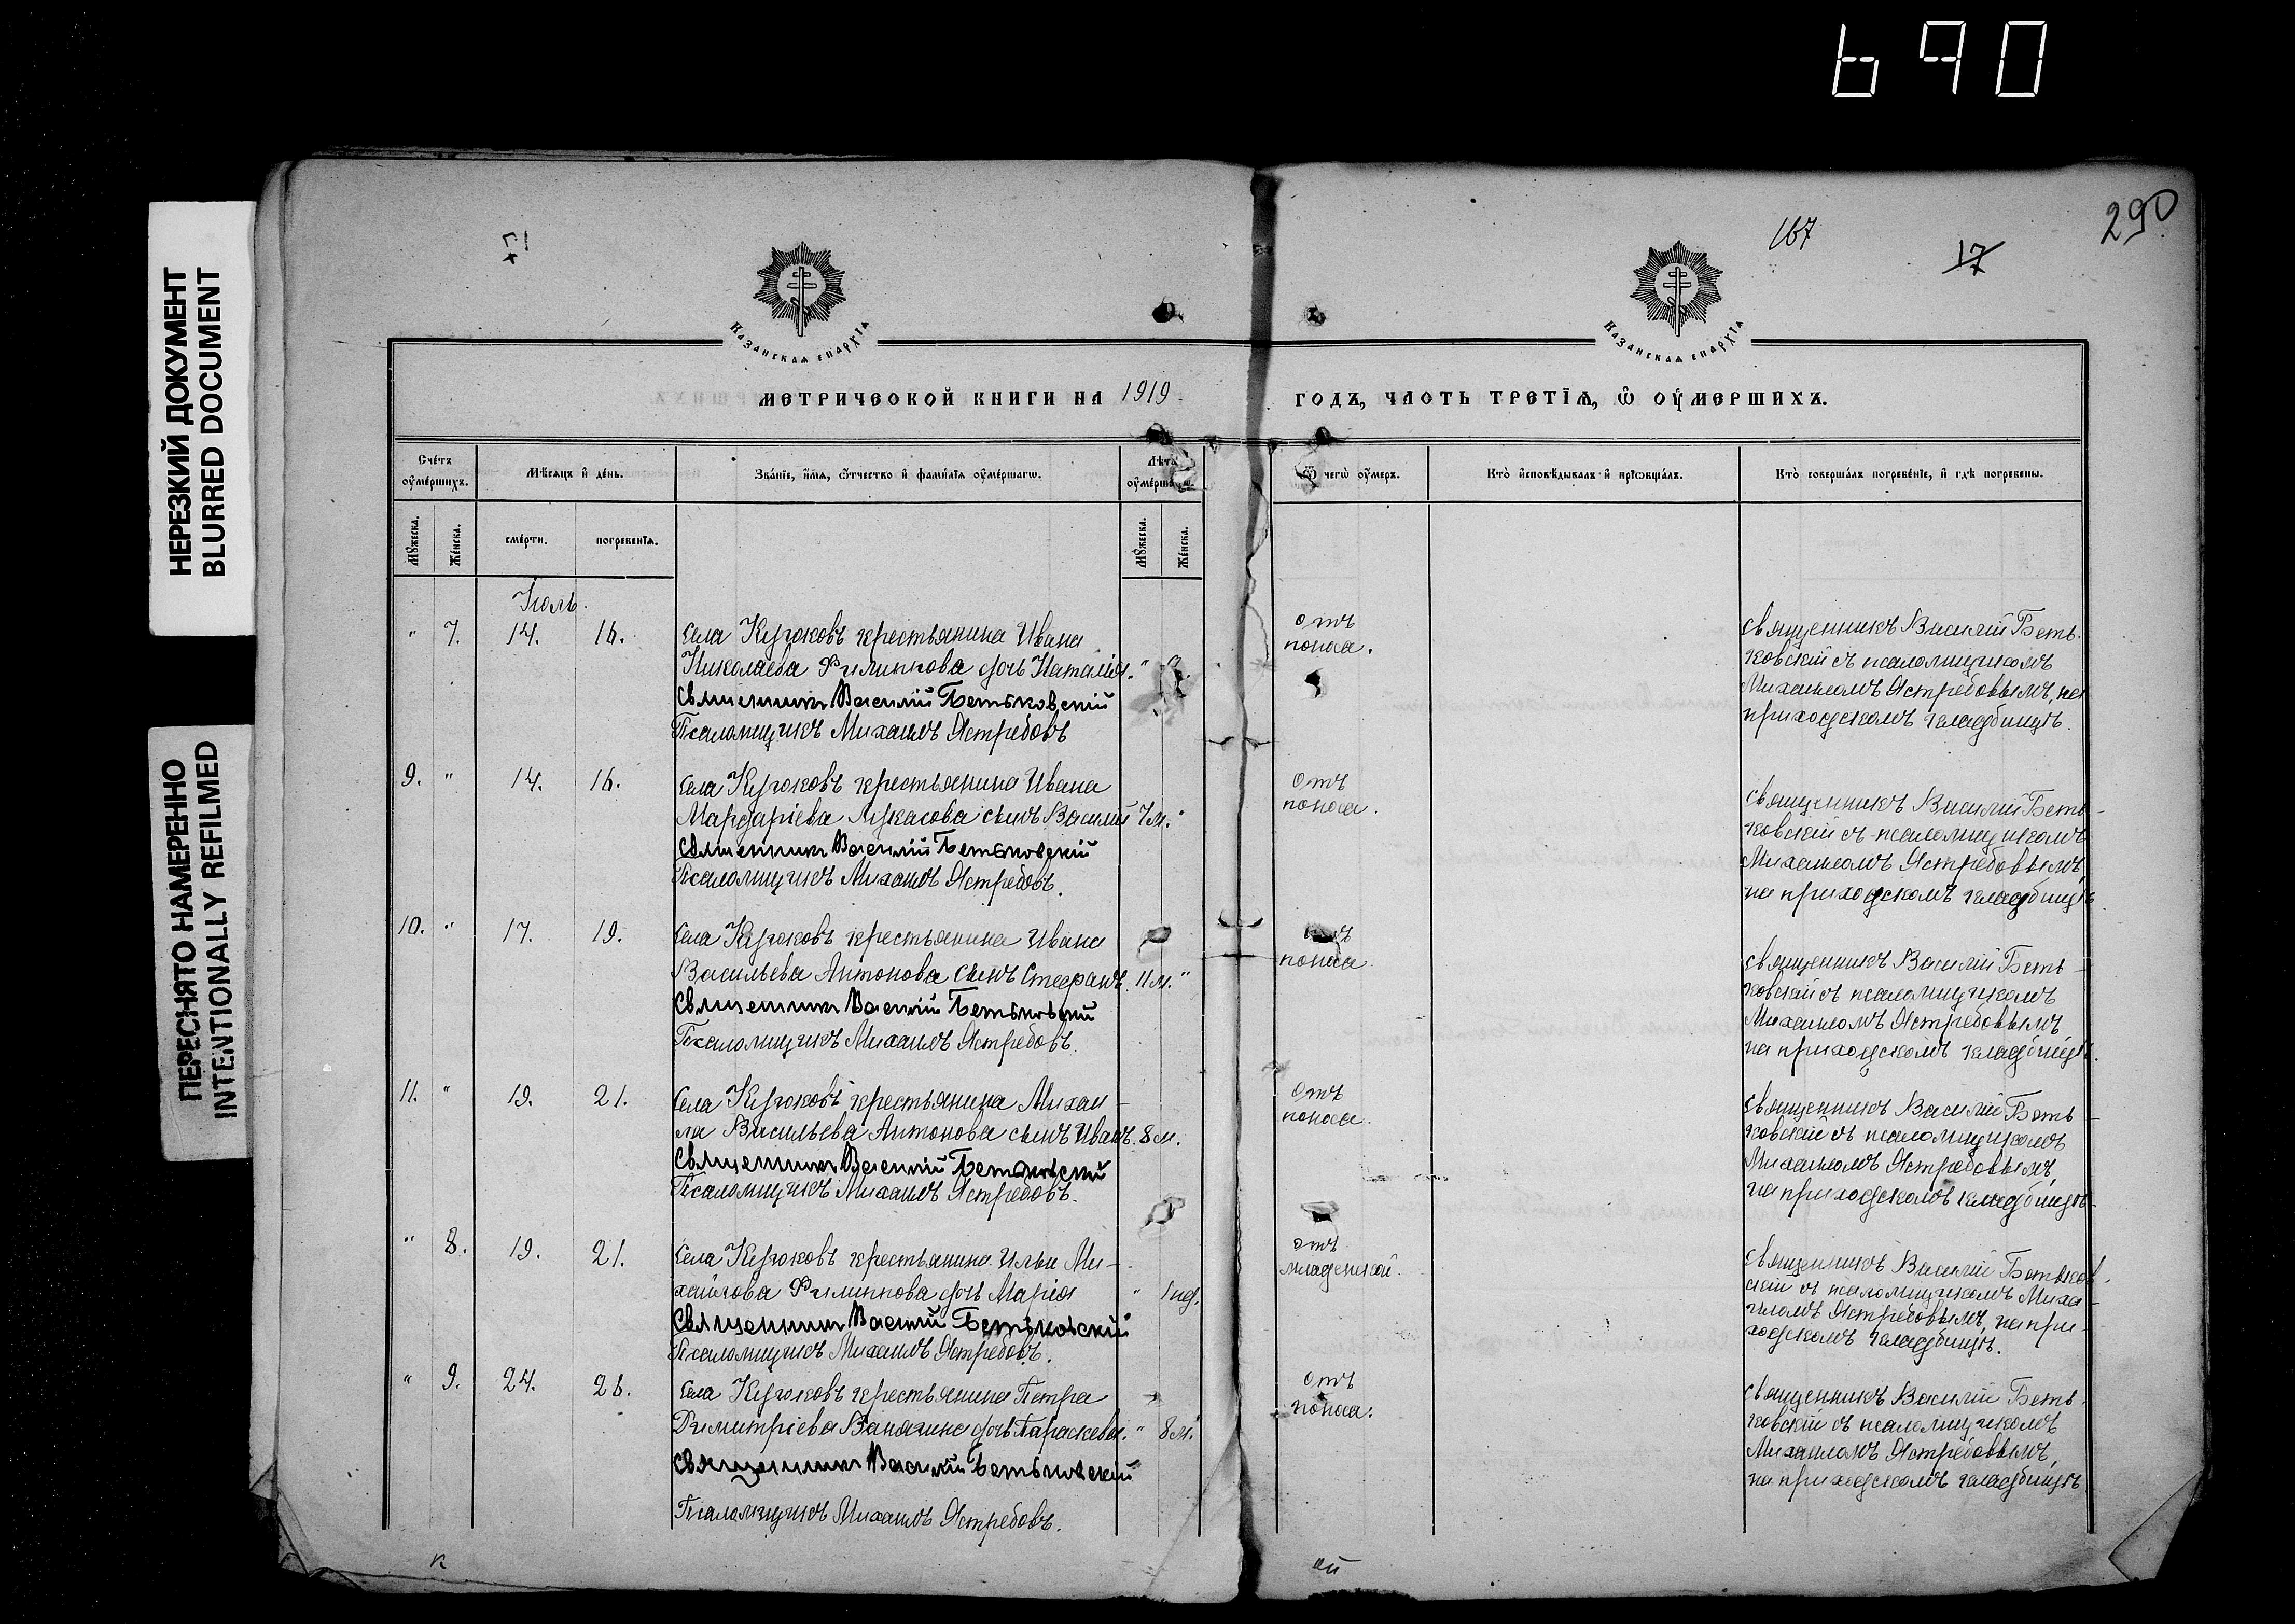 690
НЕРЕЗКИЙ ДОКУМЕНТ
BLURRED DOCUMENT
ПЕРЕСНЯТО НАМЕРЕННО
INTENTIONALLY REFILMED
290
167
17
Казанская епархїѧ
Казанская епархїѧ
МЕТРИЧЕСКОЙ КНИГИ НА 1919
ГОДЪ, ЧАСТЬ ТРЕТЇѦ, Ѡ ОУМЕРШИХЪ.
Счетъ оумершихъ.
Мѣсяцъ и день.
Званїе, имѧ, ѿчество и фамилїѧ оумершагѡ.
Лѣта оумершагѡ.
Ѿ чегѡ оумеръ.
Кто исповѣдывалъ и прїѡбщалъ.
Кто совершалъ погребенїе, и гдѣ погребены.
Мꙋжеска.
Женска.
смерти.
погребенїѧ.
Мꙋжеска.
Женска.
Іюль.
" 7. 14. 16. Села Кугюковъ крестьянина Ивана
Николаева Филиппова дочь Наталія. "
Священникъ Василій Бетьковскій
Псаломщикъ Михаилъ Ястребовъ
отъ
поноса.
Священникъ Василій Беть-
ковскій съ псаломщикомъ
Михаиломъ Ястребовымъ, на
приходскомъ кладбищѣ.
9. " 14. 16. Села Кугюковъ крестьянина Ивана
Мардаріева Лукасова сынъ Василій 7 м. "
Священникъ Василій Бетьковскій
Псаломщикъ Михаилъ Ястребовъ.
отъ
поноса.
Священникъ Василій Беть-
ковскій съ псаломщикомъ
Михаиломъ Ястребовымъ,
на приходскомъ кладбищѣ
10. " 17. 19. Села Кугюковъ крестьянина Ивана
Васильева Антонова сынъ Стефанъ. 11 м. "
Священникъ Василій Бетьковскій
Псаломщикъ Михаилъ Ястребовъ.
отъ
поноса.
Священникъ Василій Беть-
ковскій съ псаломщикомъ
Михаиломъ Ястребовымъ,
на приходскомъ кладбищѣ.
11. " 19. 21. Села Кугюковъ крестьянина Михаи-
ла Васильева Антонова сынъ Иванъ. 8 м.
Священникъ Василій Бетьковскій
Псаломщикъ Михаилъ Ястребовъ.
отъ
поноса.
Священникъ Василій Беть-
ковскій съ псаломщикомъ
Михаиломъ Ястребовымъ,
на приходскомъ кладбищѣ.
" 8. 19. 21. Села Кугюковъ крестьянина Ильи Ми-
хайлова Филиппова дочь Марія " 1 нед.
Священникъ Василій Бетьковскій
Псаломщикъ Михаилъ Ястребовъ.
отъ
младенской.
Священникъ Василій Бетьков-
скій съ псаломщикомъ Миха-
иломъ Ястребовымъ, на при-
ходскомъ кладбищѣ.
" 9. 24. 26. Села Кугюковъ крестьянина Петра
Димитріева Ванягина дочь Параскева. " 8 м.
Священникъ Василій Бетьковскій
Псаломщикъ Михаилъ Ястребовъ.
отъ
поноса.
Священникъ Василій Беть-
ковскій съ псаломщикомъ
Михаиломъ Ястребовымъ,
на приходскомъ кладбищѣ
к
ой